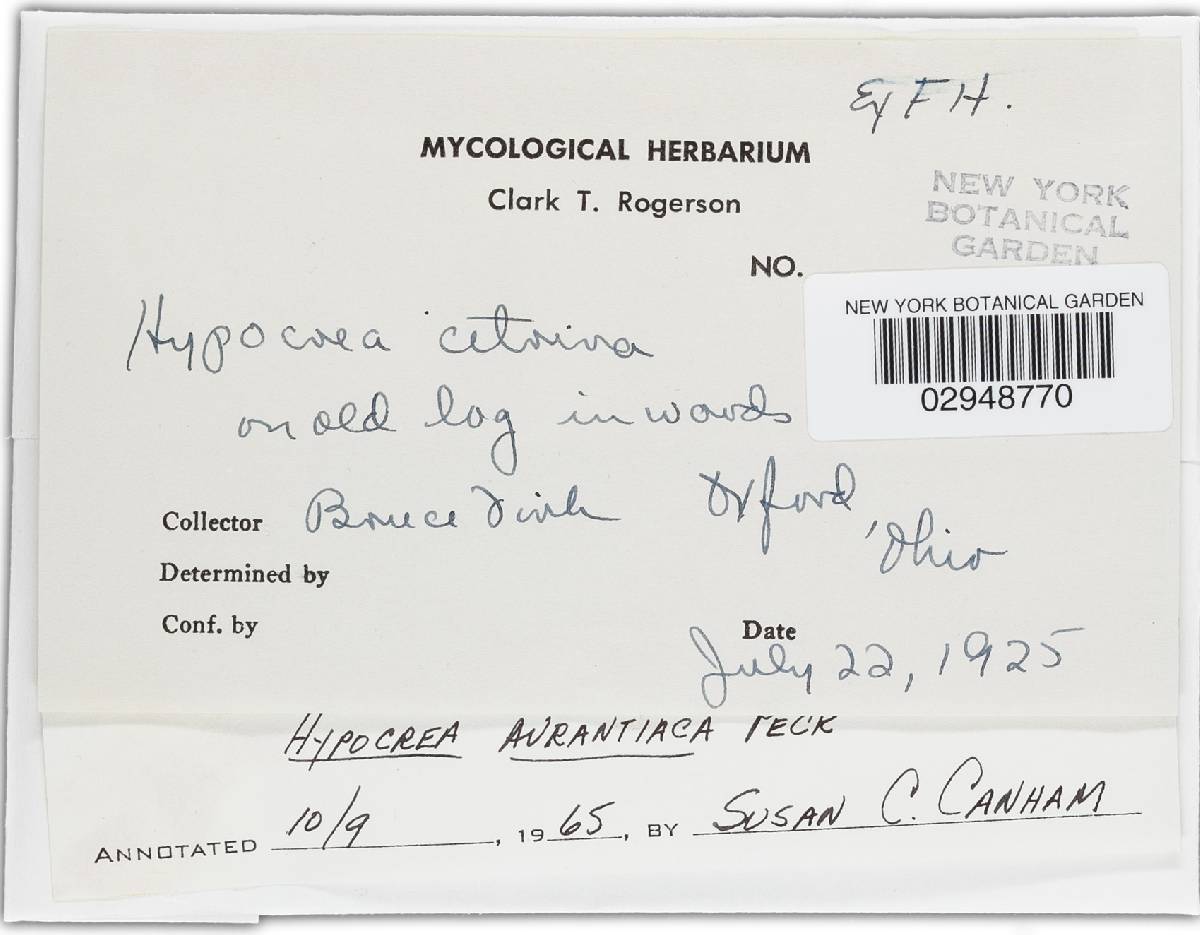 Ex FH.
MYCOLOGICAL HERBARIUM
Clark T. Rogerson
NEW YORK
BOTANICAL
GARDEN
NO.
NEW YORK BOTANICAL GARDEN
02948770
Hypocrea citrina
on old log in woods
Collector Bruce Fink Oxford, Ohio
Determined by
Conf. by
Date July 22, 1925
HYPOCREA AURANTIACA PECK
ANNOTATED 10/9, 1965, BY SUSAN C. CANHAM